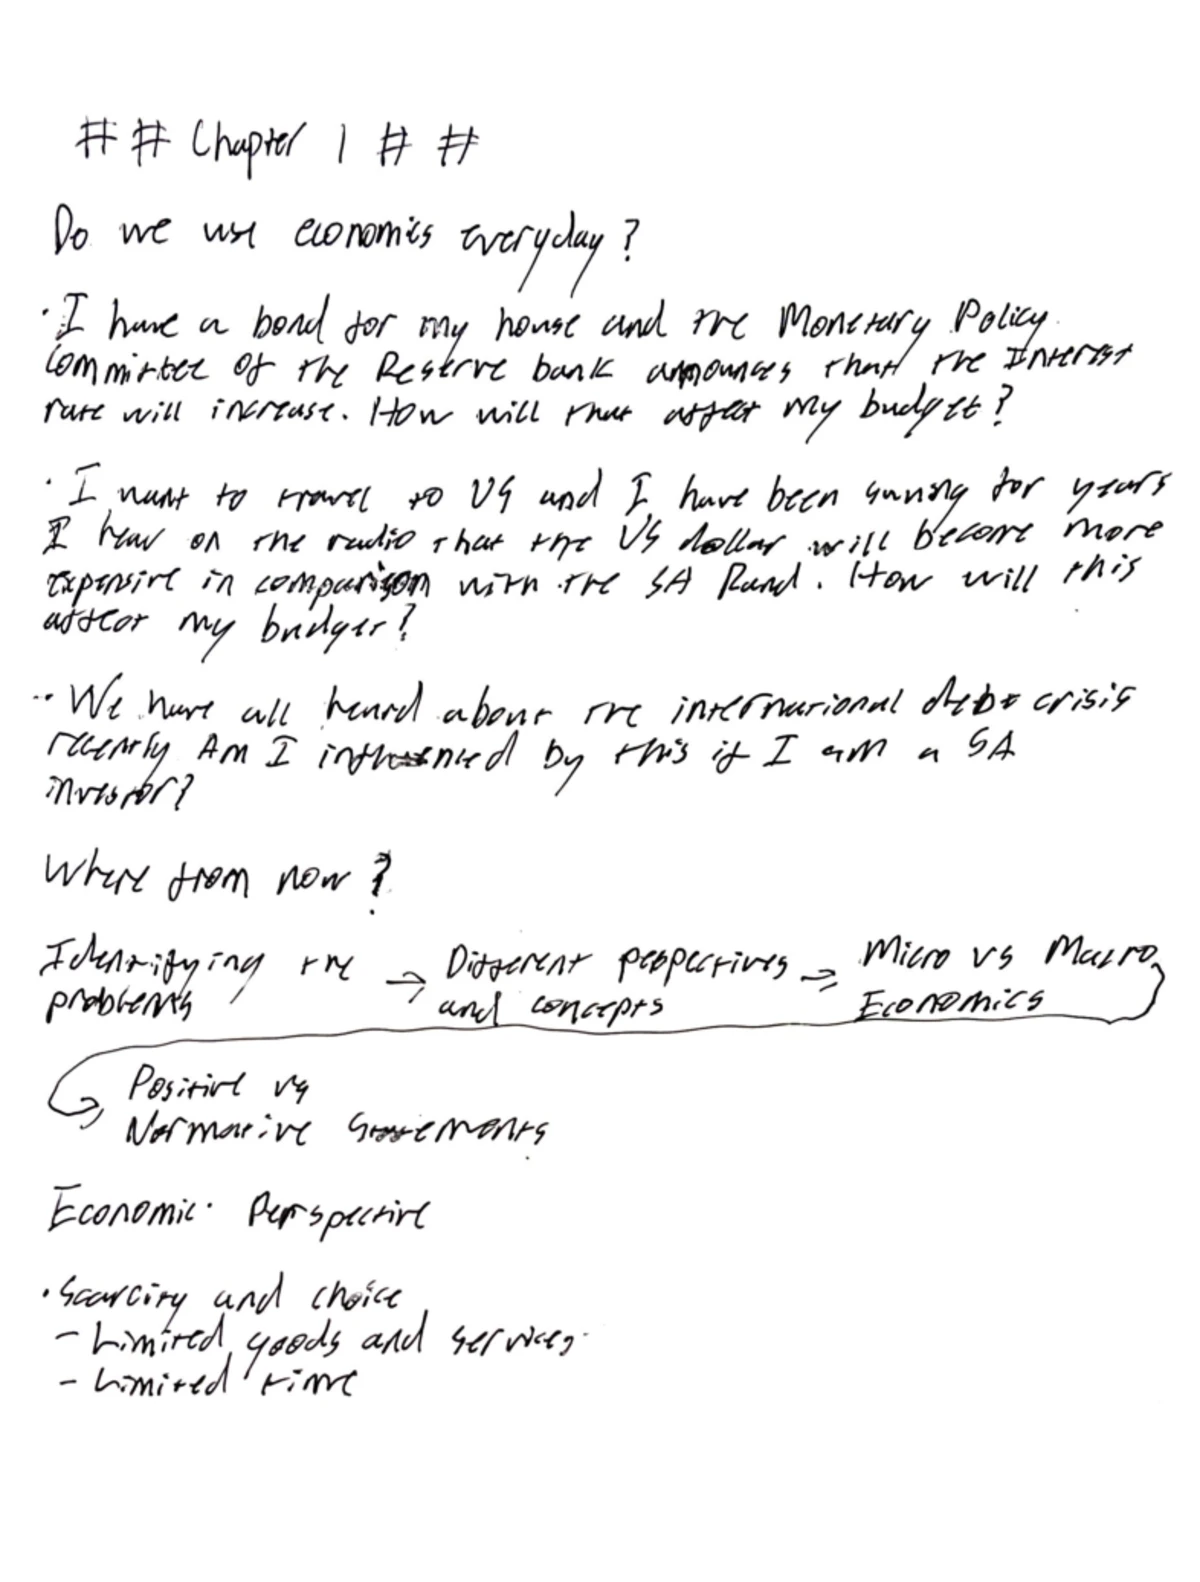 ## Chapter 1 ##
Do we use economics everyday?
· I have a bond for my house and the Monetary Policy
Committee of the Reserve bank announces that the Interest
rate will increase. How will that affect my budget?
· I want to travel to US and I have been saving for years
I hear on the radio that the US dollar will become more
expensive in comparison with the SA Rand. How will this
affect my budget?
· We have all heard about the international debt crisis
recently Am I influenced by this if I am a SA
investor?
Where from now?
Identifying the → Different perspectives → Micro vs Macro
problems and concepts Economics
Positive vs
Normative Statements
Economic Perspective
· Scarcity and choice
- Limited goods and services
- Limited time